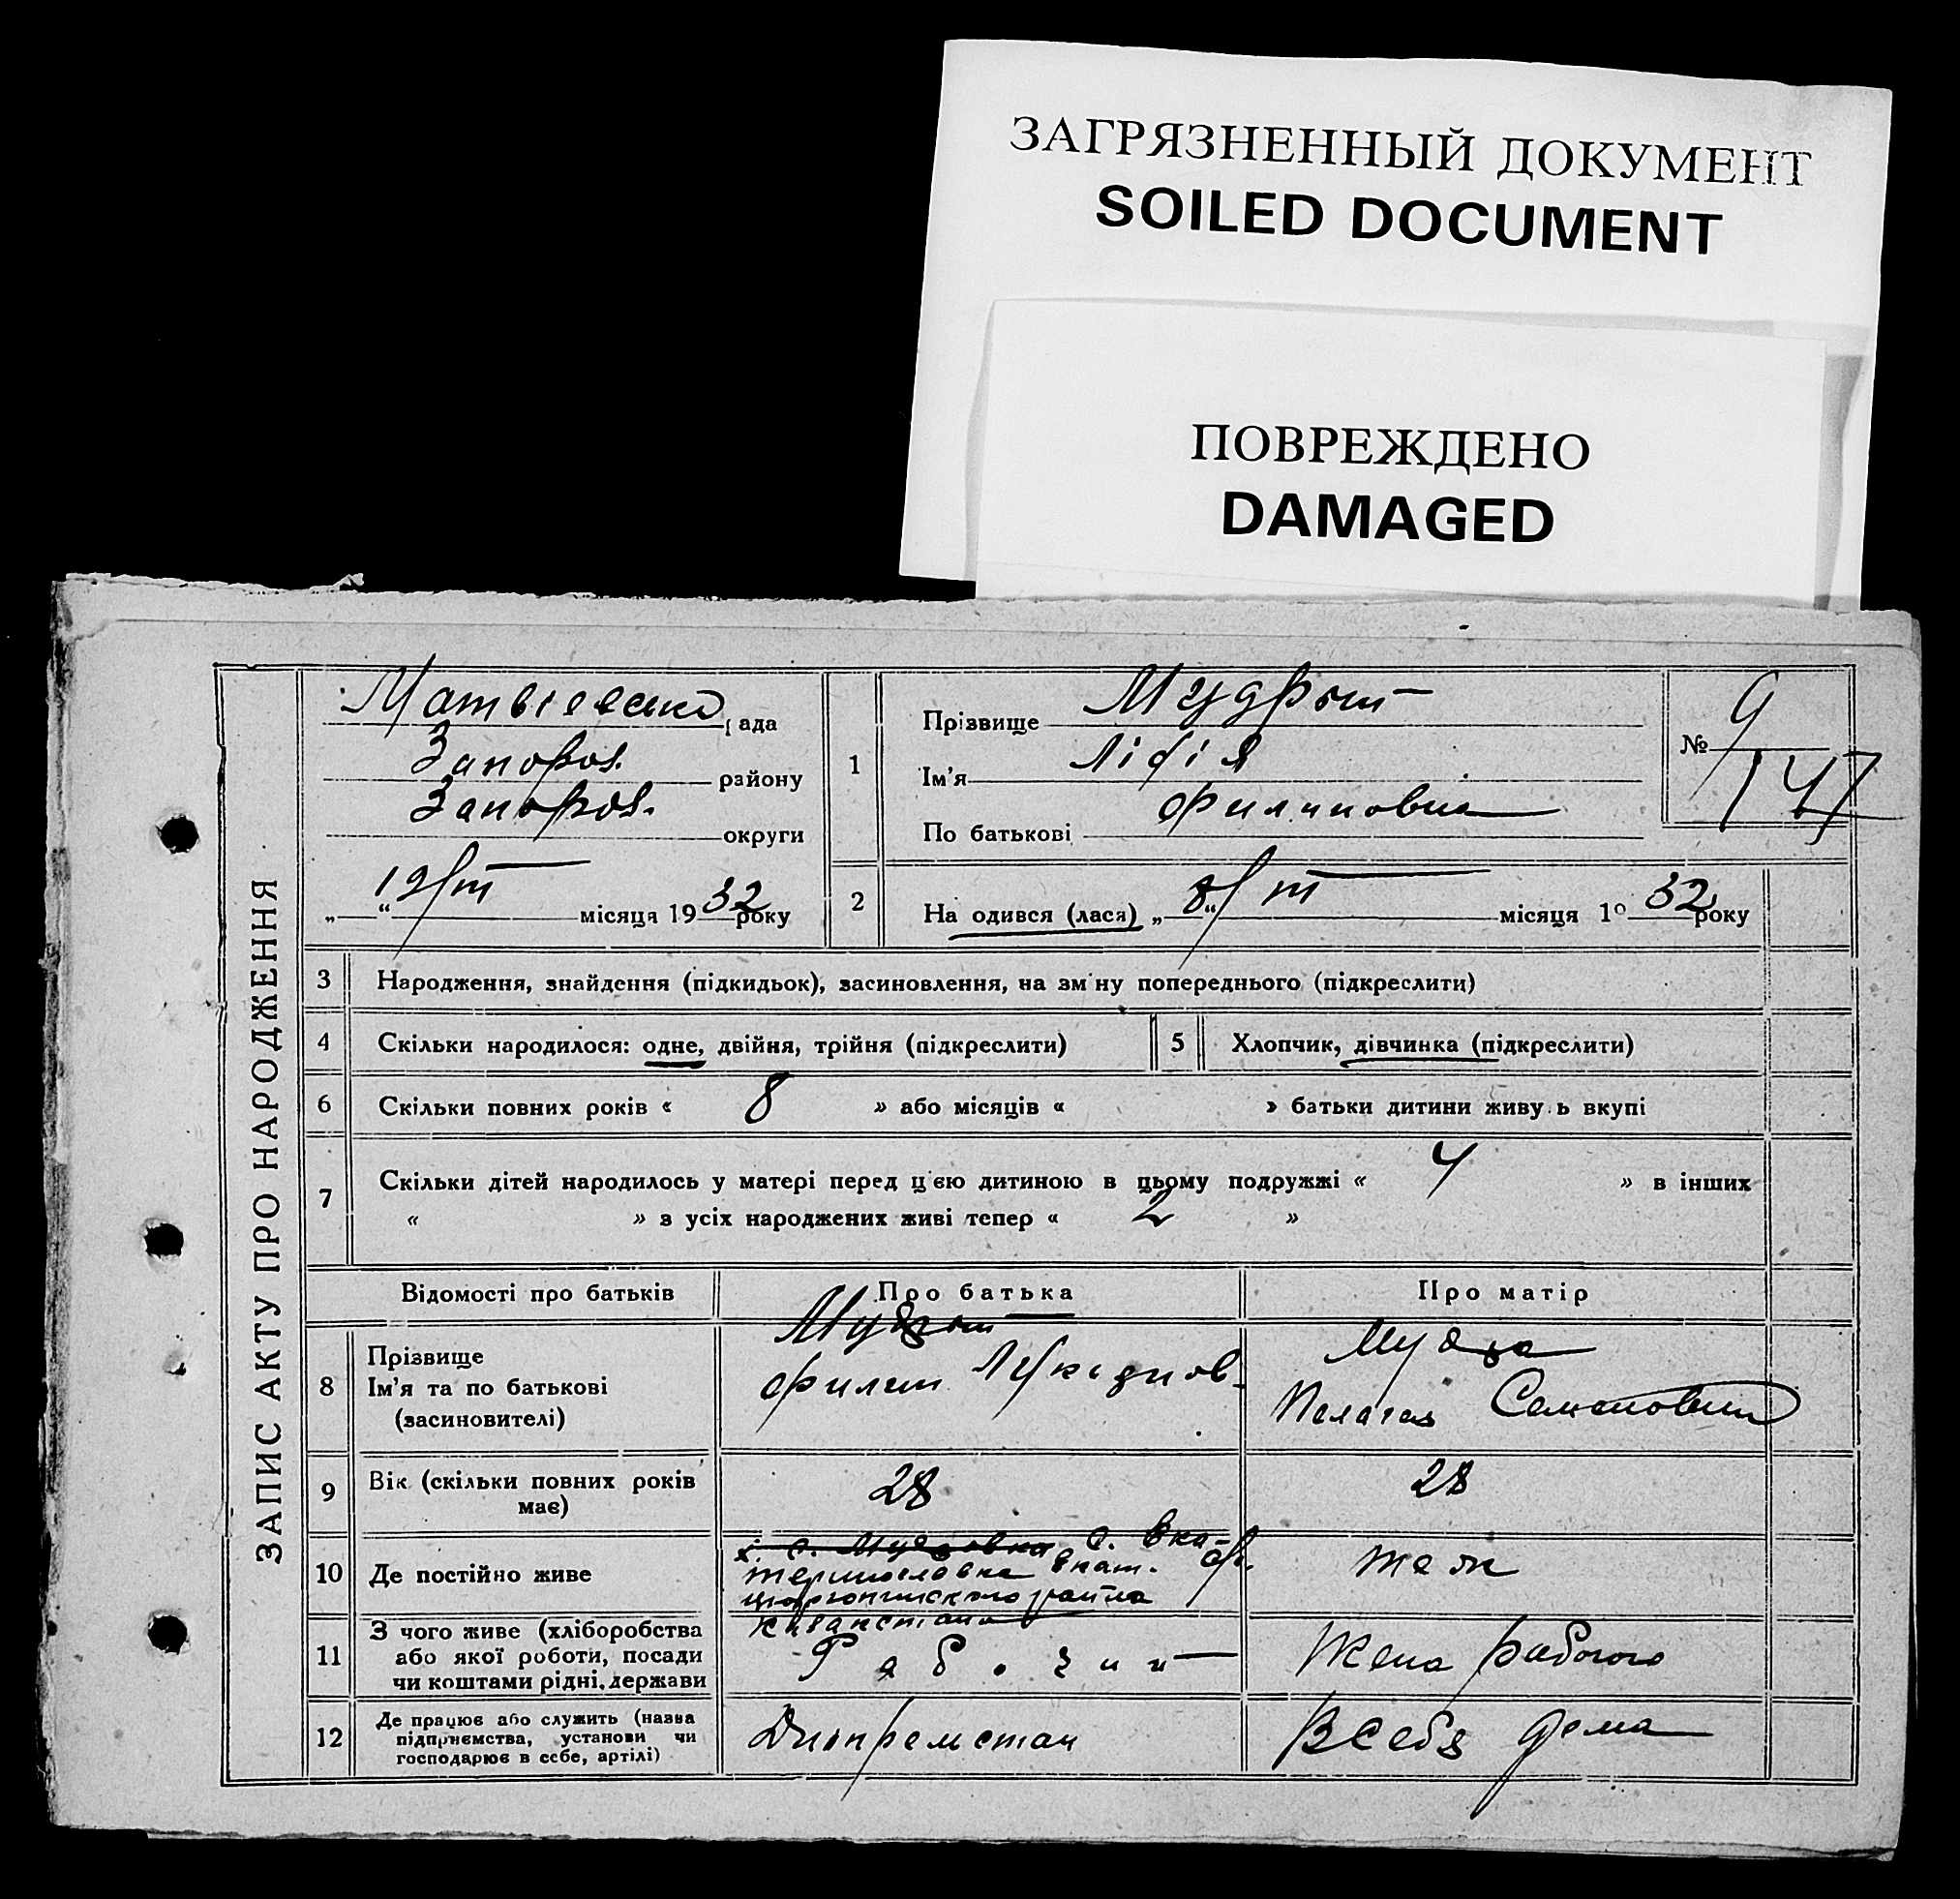 ЗАГРЯЗНЕННЫЙ ДОКУМЕНТ
SOILED DOCUMENT
ПОВРЕЖДЕНО
DAMAGED
ЗАПИС АКТУ ПРО НАРОДЖЕННЯ
Матвієвська рада
Запорож. району
Запорож. округи
„ 12/III “ місяця 1932 року
1
Прізвище Мудрый
Ім'я Лідія
По батькові Филиповна
№ 9
147
2
На одився (лася) „ 8/III “ місяця 1932 року
3 Народження, знайдення (підкидьок), засиновлення, на зм ну попереднього (підкреслити)
4 Скільки народилося: одне, двійня, трійня (підкреслити)
5 Хлопчик, дівчинка (підкреслити)
6 Скільки повних років « 8 » або місяців « » батьки дитини живу ь вкупі
7 Скільки дітей народилось у матері перед ц єю дитиною в цьому подружжі « 4 » в інших
« » з усіх народжених живі тепер « 2 »
Відомості про батьків Про батька Про матір
8 Прізвище
Ім'я та по батькові
(засиновителі)
Мудрый
Филип
Мудра
Пелагея Семеновна
9 Вік (скільки повних років має)
28
28
10 Де постійно живе
с. Ека-
териnословка Екат.
района
теж
11 З чого живе (хліборобства
або якої роботи, посади
чи коштами рідні, держави
Рабочий
Жена рабочого
12 Де працює або служить (назва
підприємства, установи чи
господарює в себе, артілі)
Дніпремстан
В себя дома